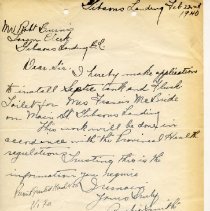 Gibsons Landing Feb 22nd
1940
Mr Robt Burns
Town Clerk
Gibsons Landing B.C.
Dear Sir. I hereby make application
to install Septic tank and flush
Toilet for Mrs Francis McBride
on Main St Gibsons Landing
This work will be done in
accordance with the Provincial Health
regulations Trusting this is the
information you require
I remain
Yours Truly